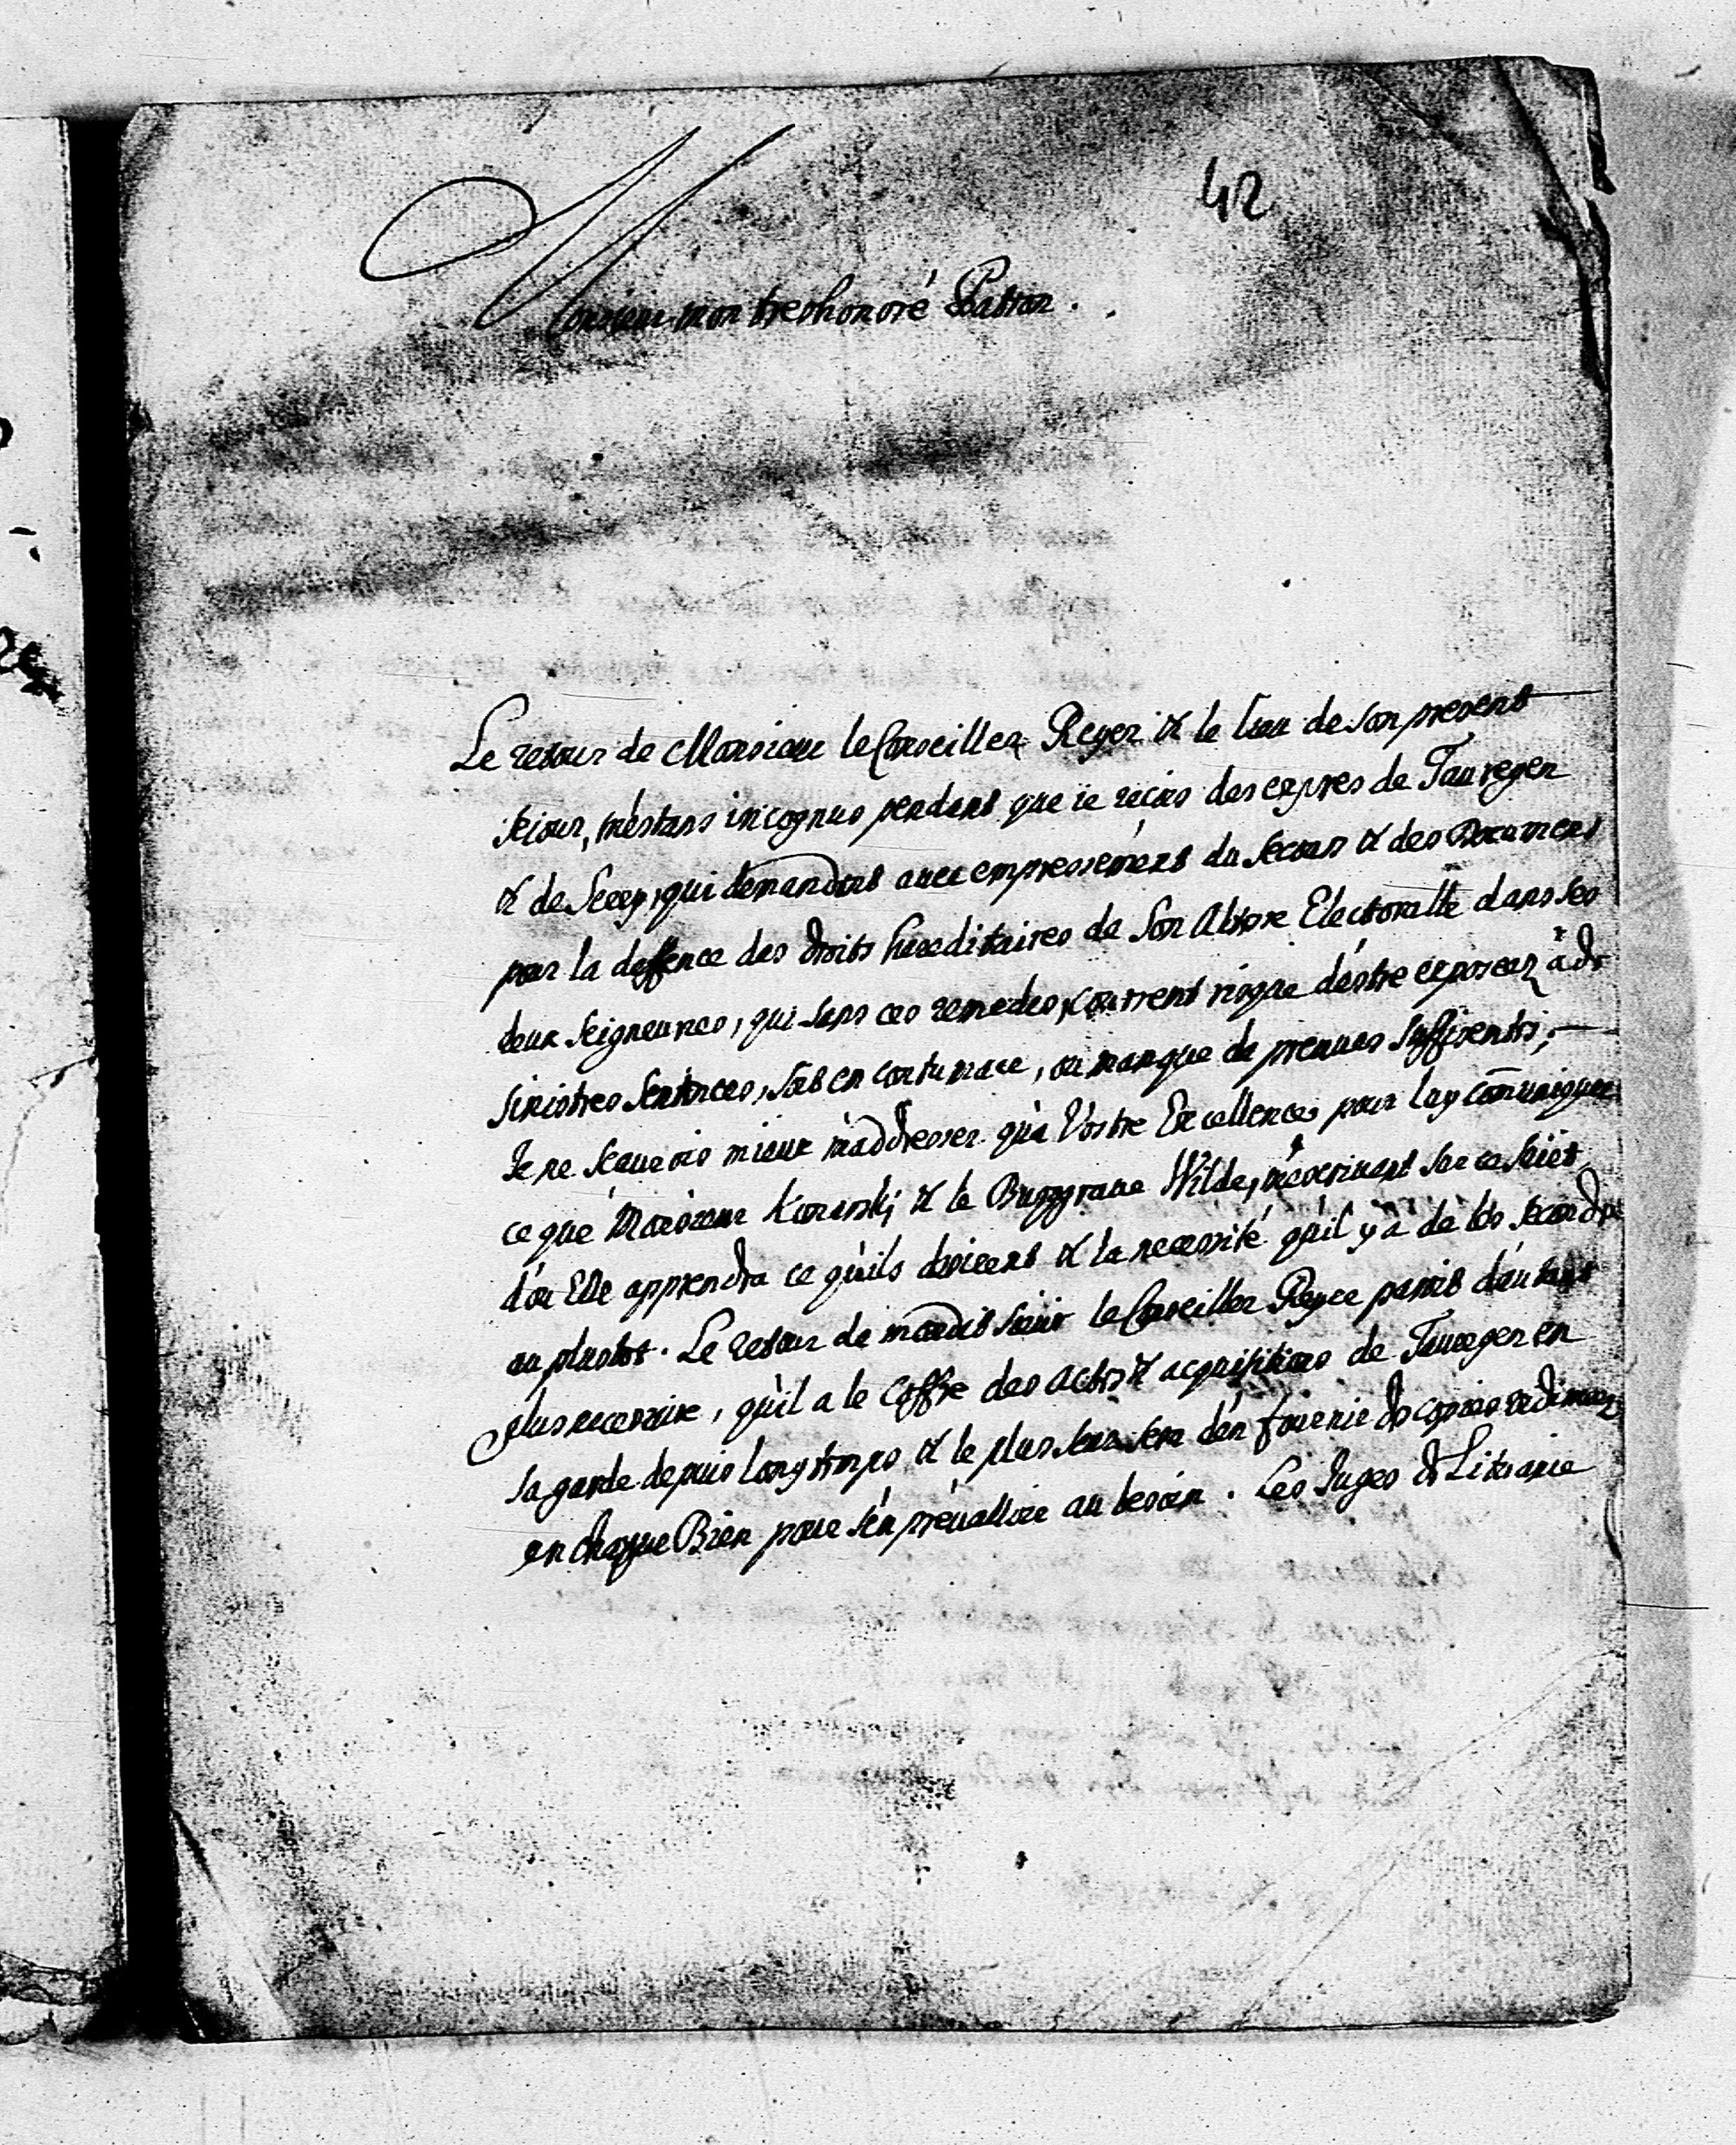 42
Monsieur mon treshonoré Patron.
Le retour de Monsieur le Conseiller Reyer & le lieu de son present
sejour, m'estans incognus pendant que ie reçois des expres de Tauregen
& de Serey, qui demandent avec empressement du secours & des Documens
pour la deffence des droits hereditaires de Son Altesse Electoralle dans ses
deux Seigneuries, qui sans ces remedes, courrent risque d'estre exposeez à de
sinistres Sentences, soit en contumace, ou manque de preuues suffisentes;
Je ne sçaurois mieux m'addresser qu'à Vostre Excellence, pour luy com̄uniquer
ce que Monsieur & le Burggraue Wilde, m'escriuent sur ce suiet,
d'ou Elle apprendra ce qu'ils desirent & la necessité qu'il y a de les seconder
au plustot. Le retour de mondit Sieur le Conseiller Reyer paroit d'autant
plus necessaire, qu'il a le Coffre des actes & acquisitions de Tauregen en
sa garde depuis longtemps & le plus seur sera d'en fournir des copies
en chaque Bien pour s'en préualloir au besoin. Les Juges de Lituanie